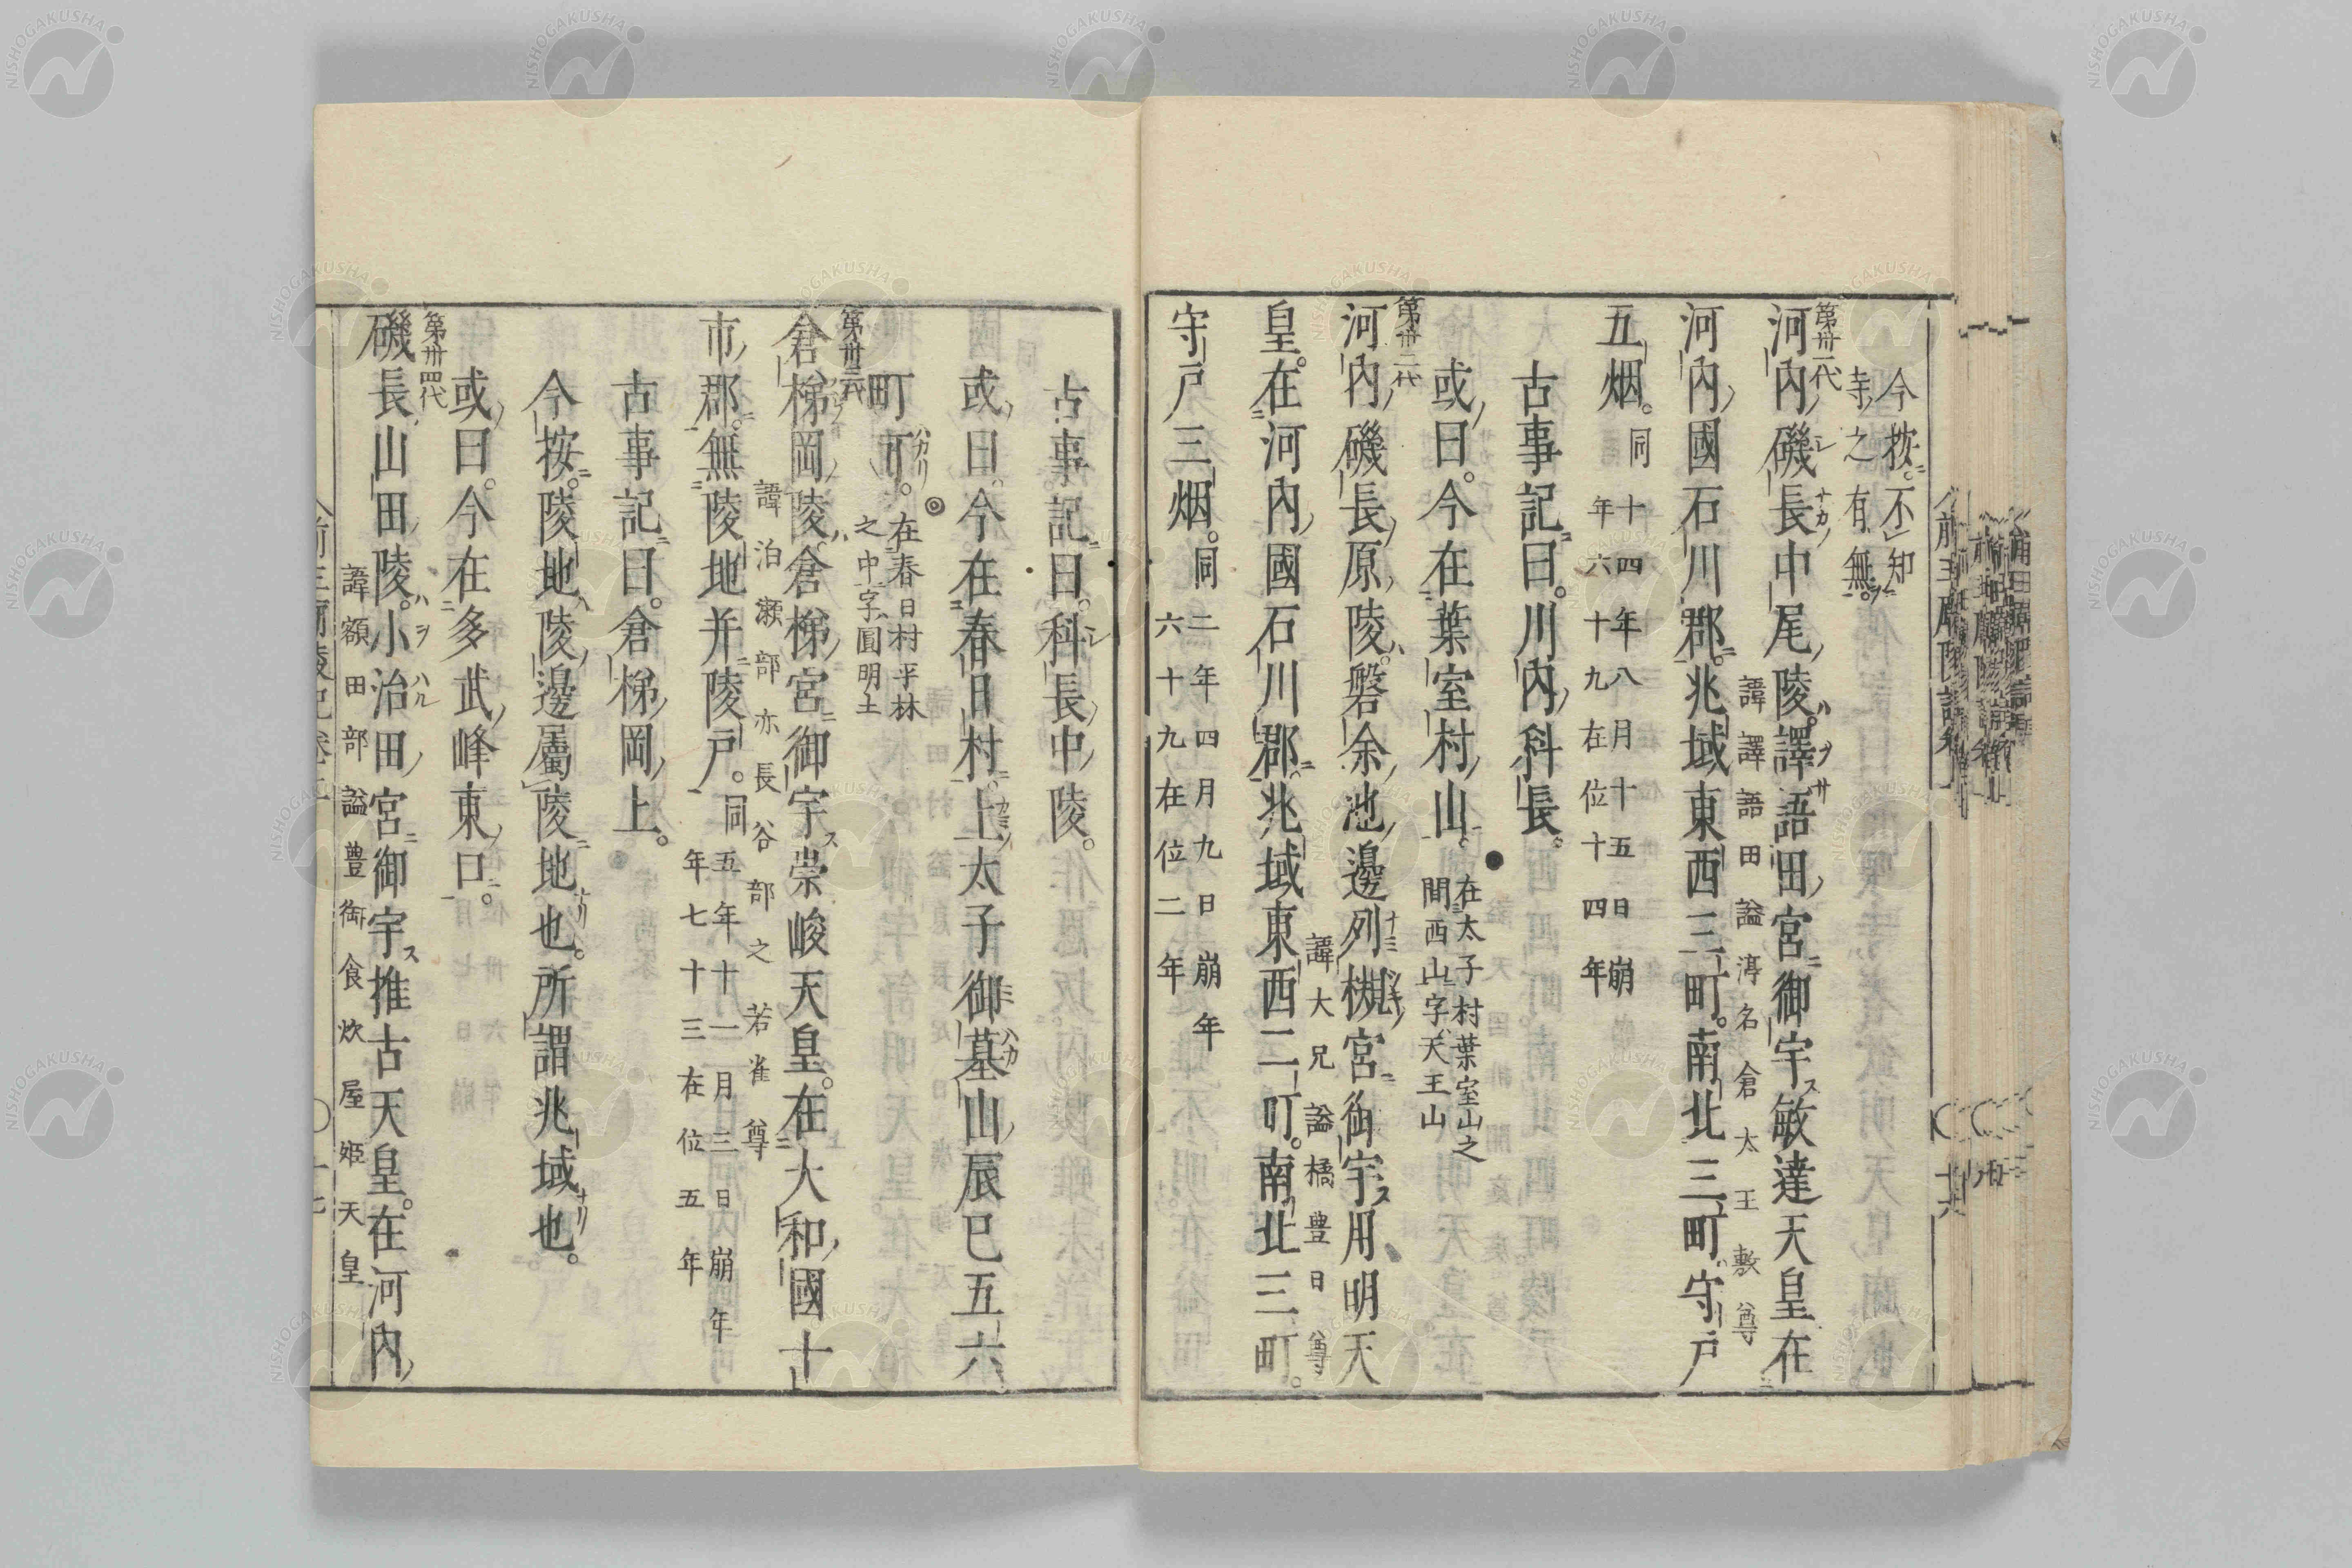 今按不知
寺之有無
第卅一代
河内磯長中尾陵譯語田宮御宇敏達天皇在
諱譯語田謚渟名倉太王敷尊
河内國石川郡兆域東西三町南北三町守戸
五烟同十四年八月十五日崩
年六十九在位十四年
古事記曰川内科長
或曰今在葉室村山在太子村葉室山之
間西山字天王山
第卅二代
河内磯長原陵磐余池邊列槻宮御宇用明天
諱大兄謚橘豊日尊
皇在河内國石川郡兆域東西二町南北三町
守戸三烟同二年四月九日崩年
六十九在位二年
古事記曰科長中陵
或曰今在春日村上太子御墓山辰巳五六
町可在春日村平林
之中字圓明土
第卅三代
倉梯岡陵倉梯宮御宇崇峻天皇在大和國十
諱泊瀬部亦長谷部之若雀尊
市郡無陵地并陵戸同五年十一月三日崩年
年七十三在位五年
古事記曰倉梯岡上
今按陵地陵邊屬陵地也所謂兆域也
或曰今在多武峰東口
第卅四代
磯長山田陵小治田宮御宇推古天皇在河内
諱額田部謚豊御食炊屋姫天皇